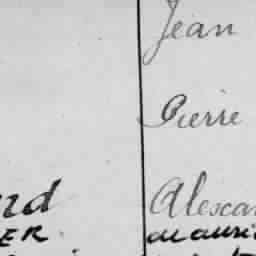 Jean
Pierre
nd Alexan
ER. Mauri